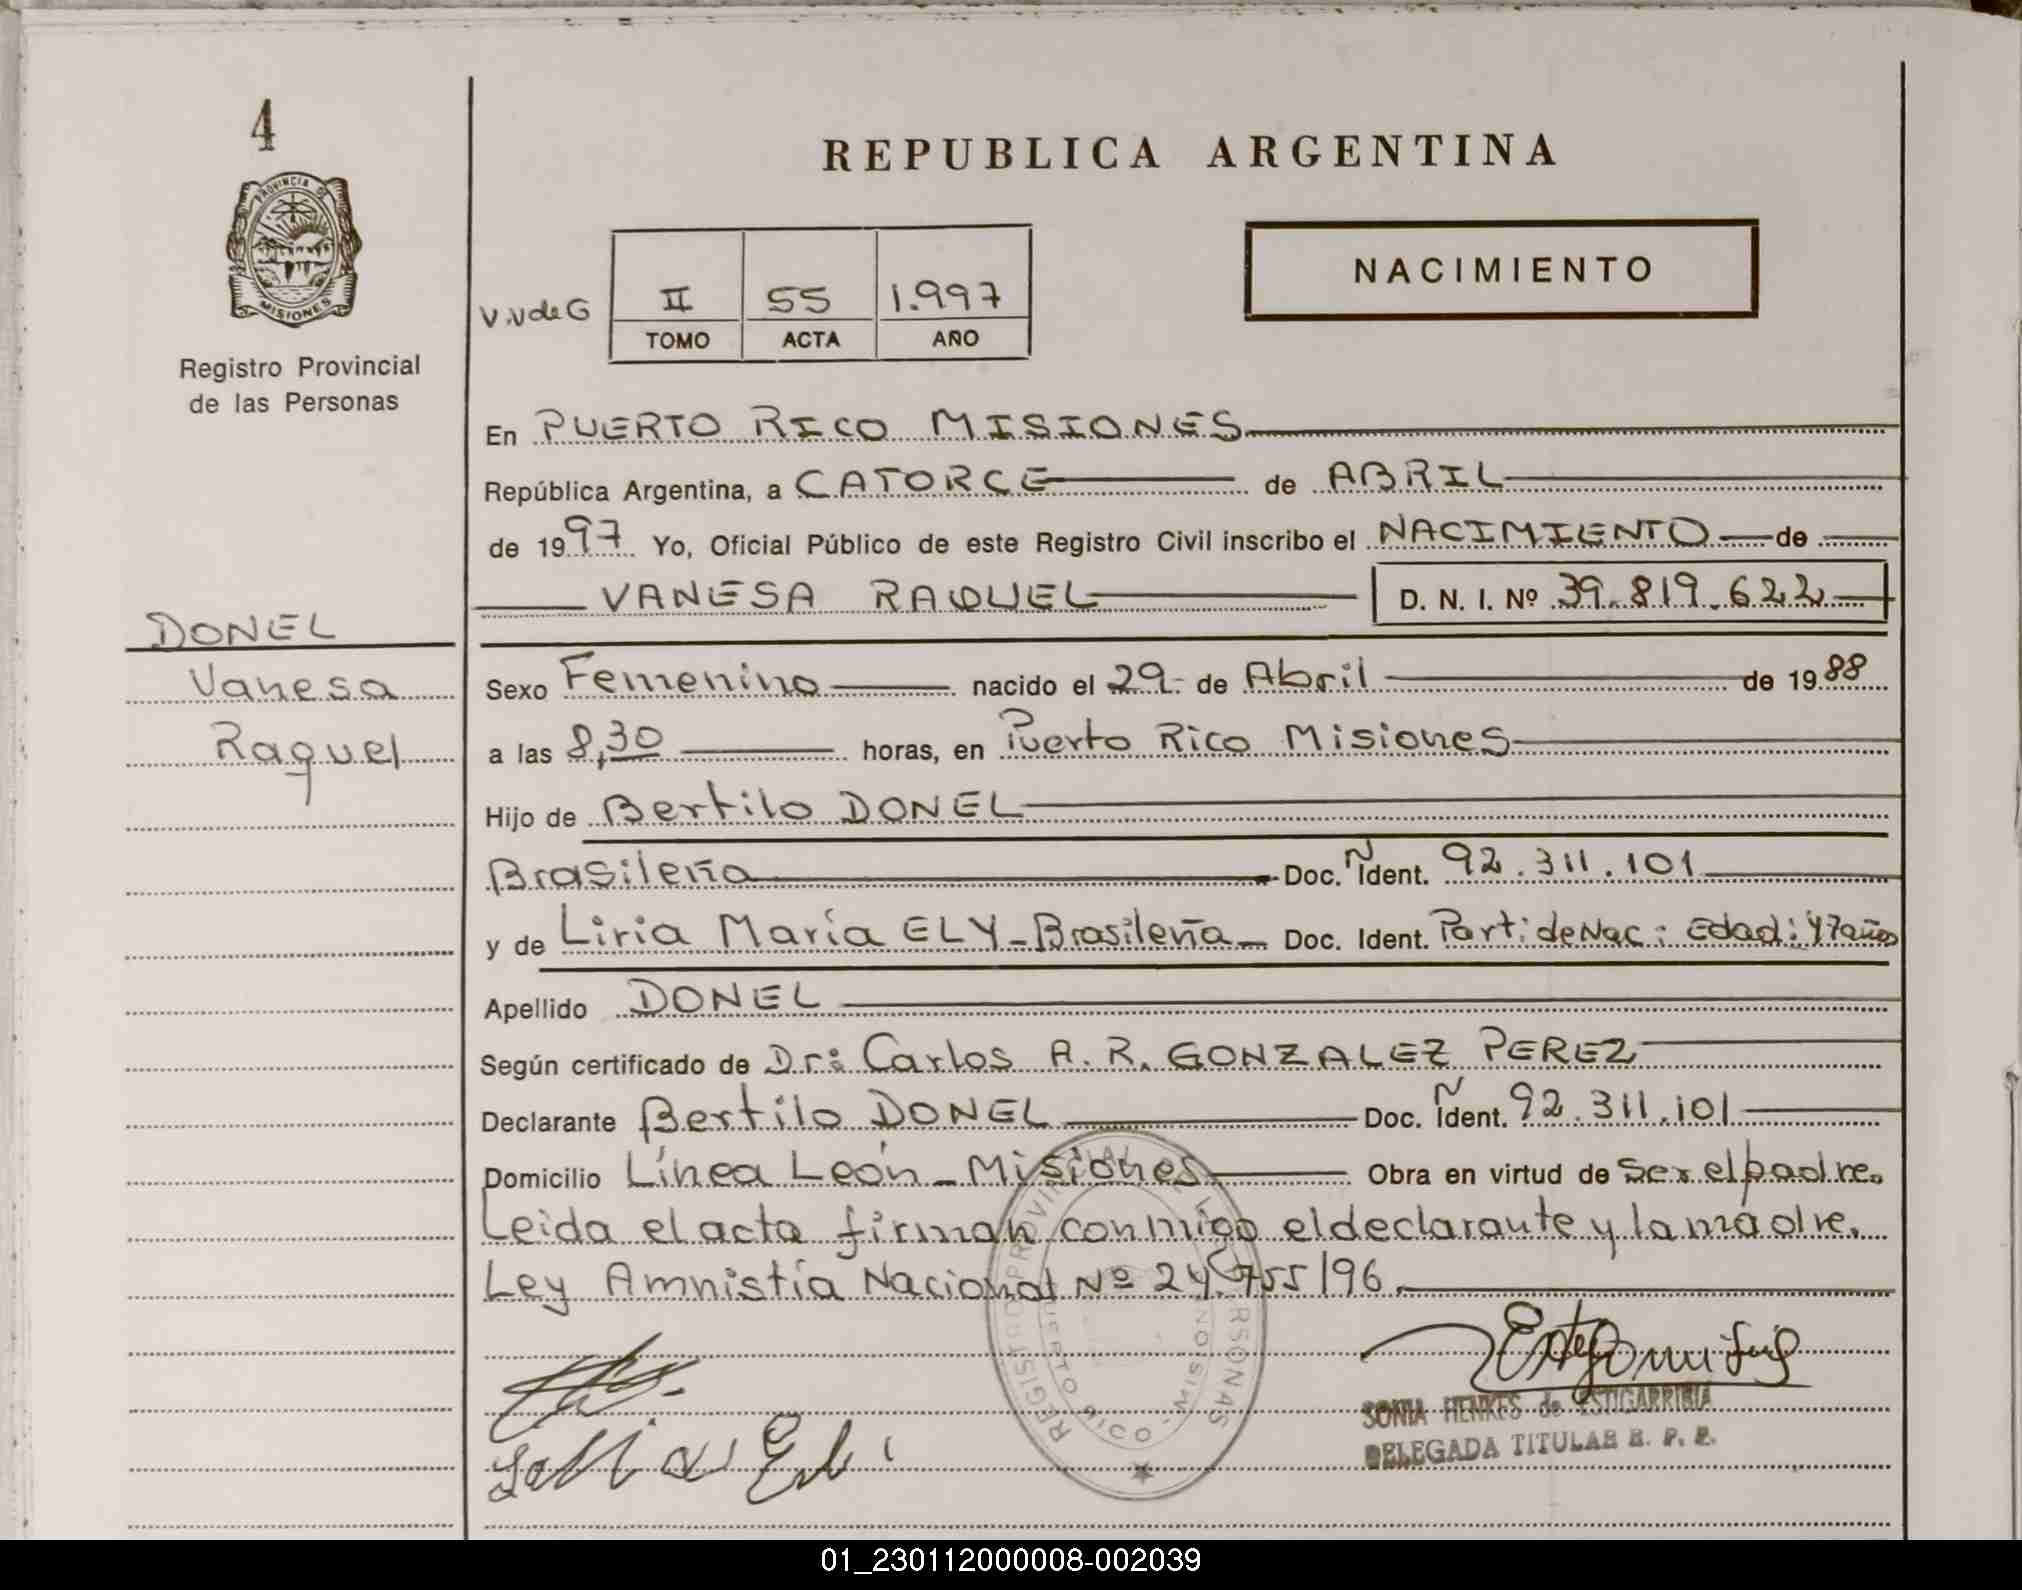 4
PROVINCIA DE
MISIONES
Registro Provincial
de las Personas
REPUBLICA ARGENTINA
NACIMIENTO
V.V de G
II 55 1.997
TOMO ACTA AÑO
En PUERTO RICO MISIONES
República Argentina, a CATORCE de ABRIL
de 1997 Yo, Oficial Público de este Registro Civil inscribo el NACIMIENTO de
VANESA RAQUEL D. N. I. Nº 39.819.622
DONEL
Vanesa
Raquel
Sexo Femenino nacido el 29 de Abril de 1988
a las 8,30 horas, en Puerto Rico Misiones
Hijo de Bertilo DONEL
Brasileña Doc. Ident. 92.311.101
y de Liria María ELY - Brasileña - Doc. Ident. Part: de Nac: Edad: 47 años
Apellido DONEL
Según certificado de Dr: Carlos A. R. GONZALEZ PEREZ
Declarante Bertilo DONEL Doc. Ident. 92.311.101
Domicilio Línea León - Misiones Obra en virtud de Ser el padre.
Leida el acta firman conmigo el declarante y la madre.
Ley Amnistía Nacional Nº 24.755/96
REGISTRO PROVINCIAL DE LAS PERSONAS
PUERTO RICO - MISIONES
SONIA HENKES de ESTIGARRIBIA
DELEGADA TITULAR R. P. P.
01_230112000008-002039